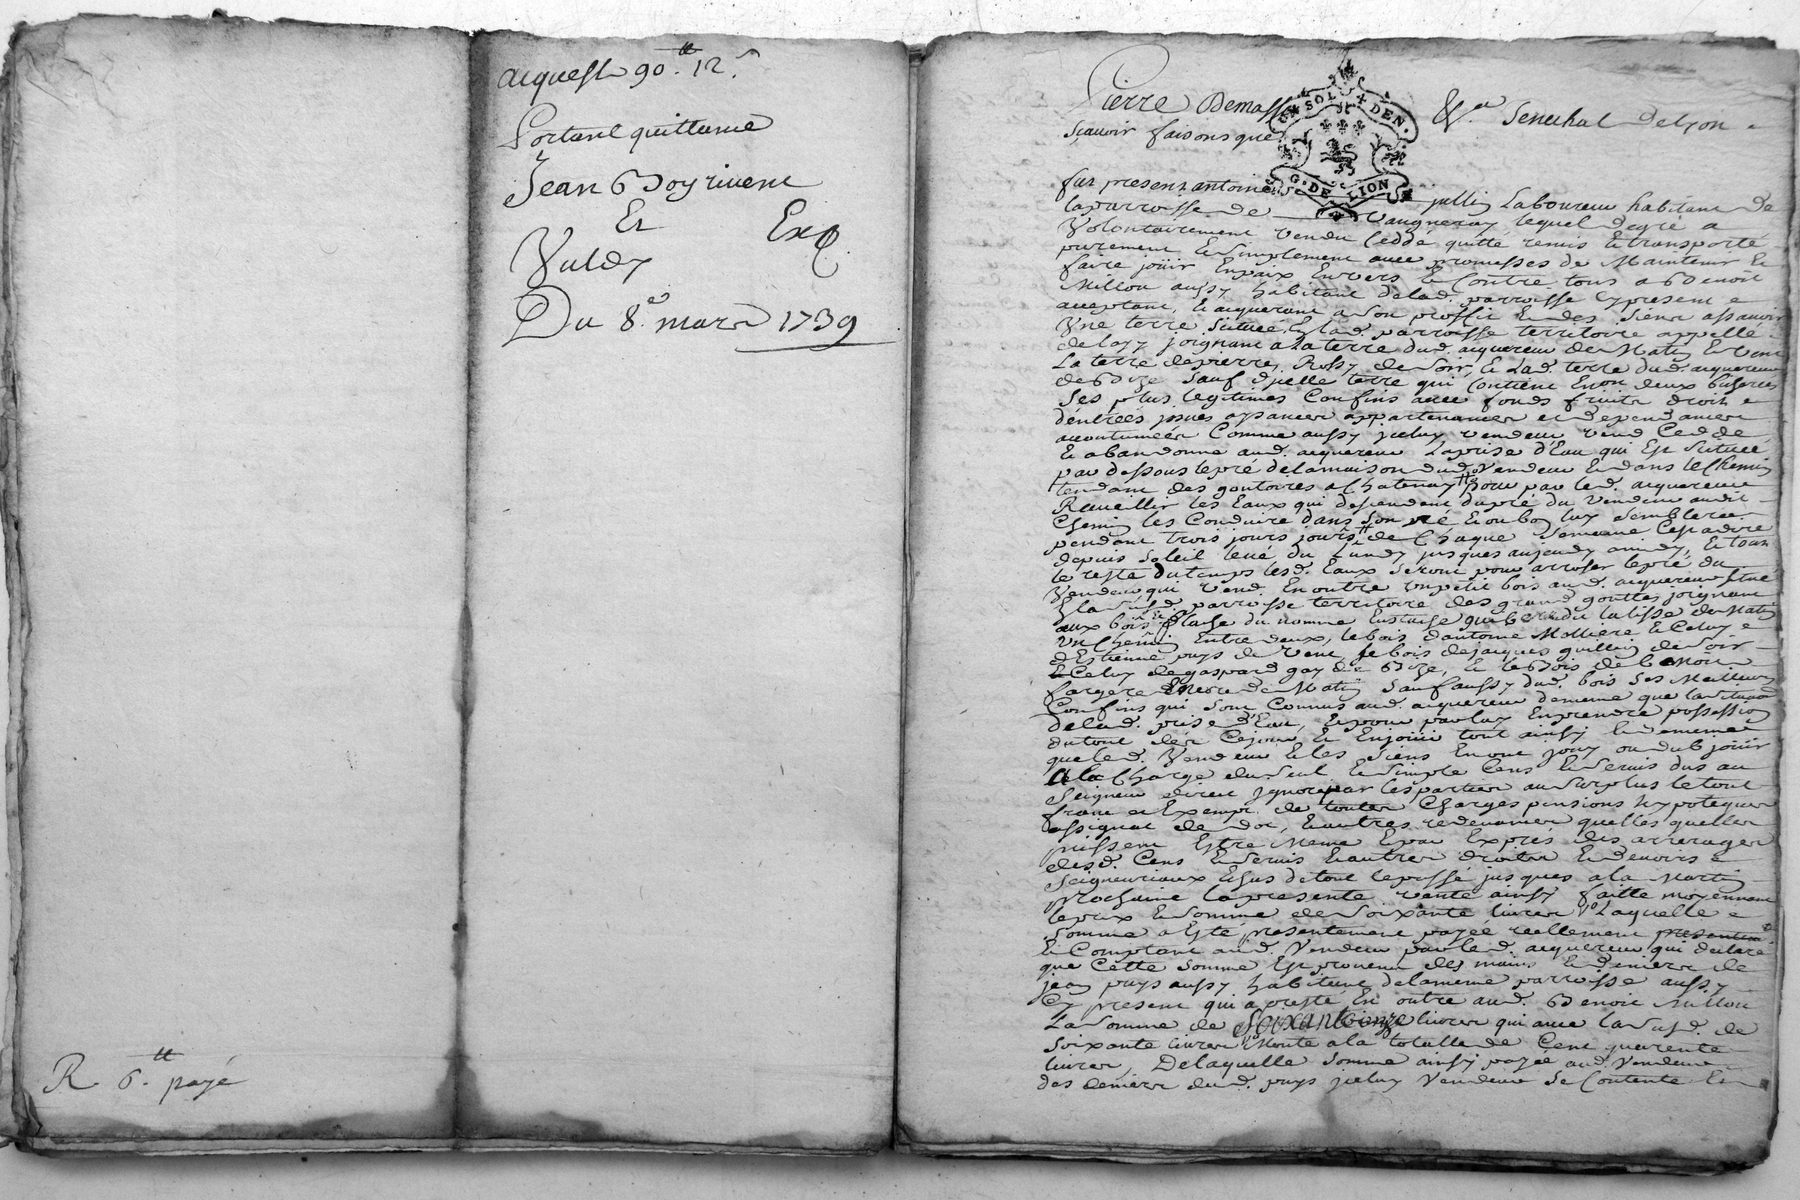 acquest 90.tt 12.s
Portant quittance
Jean Boyrivent
Et Exp.
Valdy
Du 8.e mars 1739
R 6.tt payé
Pierre Demasse &.a Senechal de Lyon
SOL DEN.
G. DE LION
scavoir faisons que
fut present antoine jullin Laboureur habitant de
la parroisse de vaugneray lequel de gré a
Volontairement vendu ceddé quitté remis et transporté
purement et simplement avec promesses de Maintenir et
faire joüir En paix Envers et Contre tous a Benoit
Millon aussy habitant de lad. parroisse cy present
acceptant et acquerant a son proffit et des siens assavoir
Une terre scituée En lad. parroisse territoire appellé
joignant a la terre dud. acquereur de Matin et vent
La terre de pierre de soir, et Lad. terre dud. acquereur
de Bize sauf d'icelle terre qui Contient Environ deux
ses plus legitimes Confins avec fonds fruits droits
d'entrées issues aysances appartenances et dependances
accoutumées Comme aussy iceluy vendeur vend Cedde
Et abandonne aud. acquereur La prise d'Eau qui Est scituée
par dessous le pré de la maison dud. Vendeur Et dans le Chemin
tendant des goutoires a Chatenay pour par led. acquereur
Recueillir les Eaux qui descendent du pré du vendeur audit
Chemin les Conduire dans son pré Et ou bon luy semblera
pendant trois jours jours de Chaque semaine Cest a dire
depuis soleil levé du Lundy jusques au jeudy, Et tout
le reste du temps lesd. Eaux seront pour arroser le pré du
Vendeur qui vend En outre un petit bois aud. acquereur situé
En la susd. parroisse territoire des grand gouttes joignant
aux bois du nomme de Matin
un Chemin Entre deux, le bois d'antoine Molliere Et Celuy
d'Estienne puys de vent, le bois de jacques guillin de soir
Et Celuy de gaspard gay de Bize, Et le Bois de Benoit
fargere Encore de Matin sauf aussy dud. bois ses Meilleurs
Confins qui sont Connus aud. acquereur de meme que la situation
de lad. prise d'Eau, Et pour par luy En prendre possession
du tout des Ce jour Et En jouir tout ainsy Et de meme
que led. Vendeur Et les siens En ont jouy ou dub joüir
a la Charge du seul Et simple Cens Et servis dus au
seigneur direct ignoré par les parties au surplus le tout
franc et Exempt de toutes Charges pensions hypoteques
assignat de dot, Et autres redevances quelles quelles
puissent Estre Meme Et par Exprés des arrerages
desd. Cens Et servis Et autres droits Et devoirs
seigneuriaux Echus de tout le passé jusques a la st Martin
prochaine La presente vente ainsy faitte moyennant
le prix Et somme de soixante livres Laquelle
somme a Esté presentement payée reellement
Et Comptant aud. Vendeur par led. acquereur qui declare
que Cette somme Est provenue des mains Et deniers de
jean puys aussy habitant de la meme parroisse aussy
Cy present qui a presté En outre aud. Benoit Millon
La somme de soixante onze livres qui avec la susd. de
soixante livres Monte a la totalle de Cent quarente
livres, De laquelle somme ainsy payée aud. Vendeur
des deniers dud. puys iceluy Vendeur se Contente Et